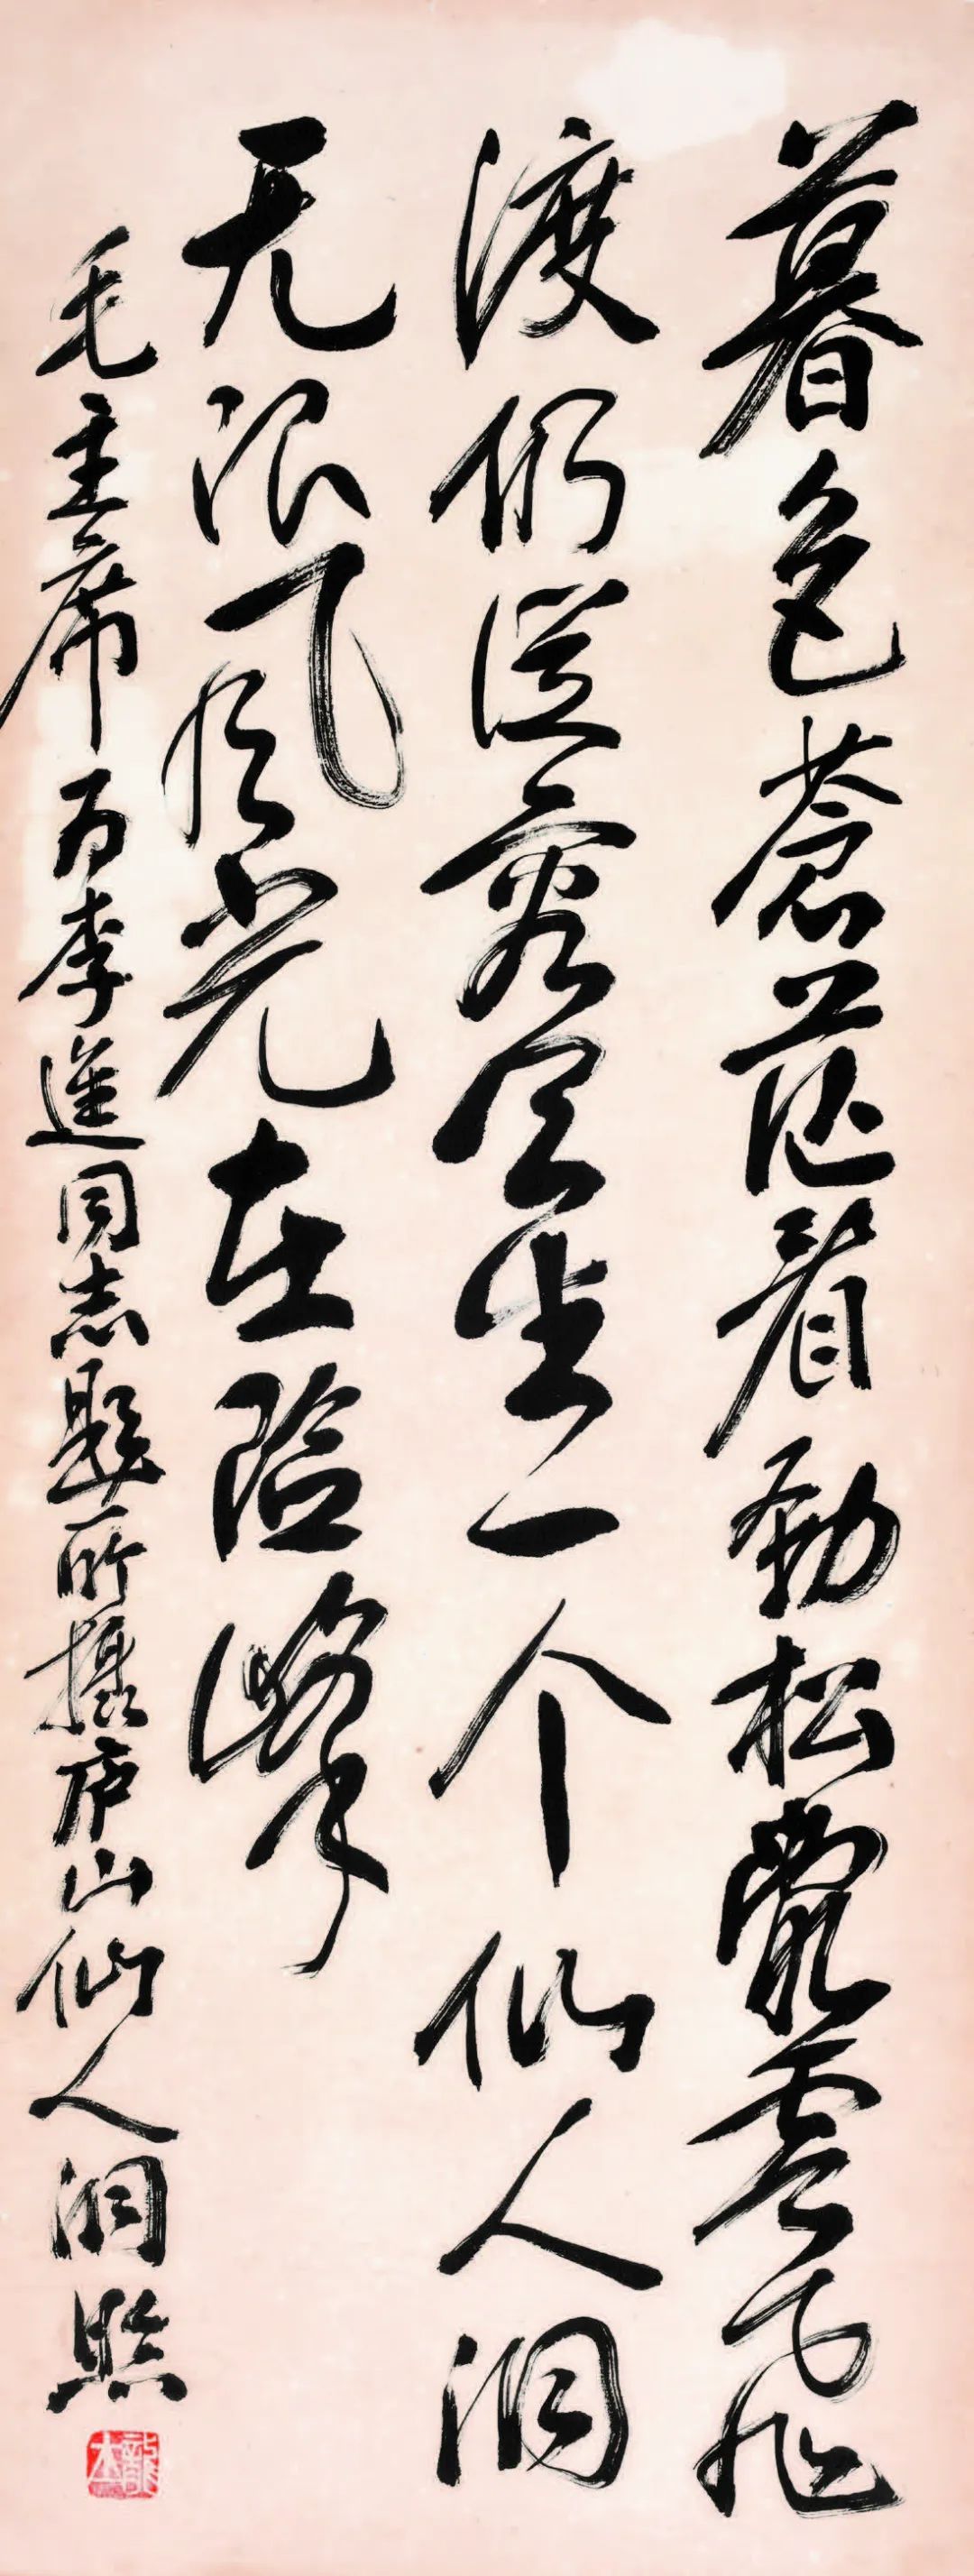 暮色蒼茫看劲松亂雲飛
渡仍從容天生一个仙人洞
无限风光在险峰
毛主席为李進同志題所攝庐山仙人洞照